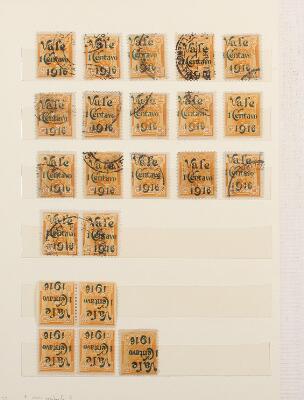 Vale Vale Vale Vale Vale
1 Centavo 1 Centavo 1 Centavo 1 Centavo 1 Centavo
1916 1916 1916 1916 1916
Vale Vale Vale Vale Vale
1 Centavo 1 Centavo 1 Centavo 1 Centavo 1 Centavo
1916 1916 1916 1916 1916
Vale Vale Vale Vale Vale
1 Centavo 1 Centavo 1 Centavo 1 Centavo 1 Centavo
1916 1916 1916 1916 1916
Vale Vale
1 Centavo 1 Centavo
1916 1916
1916 1916
1 Centavo 1 Centavo
Vale Vale
1916 1916 1916
1 Centavo 1 Centavo 1 Centavo
Vale Vale Vale